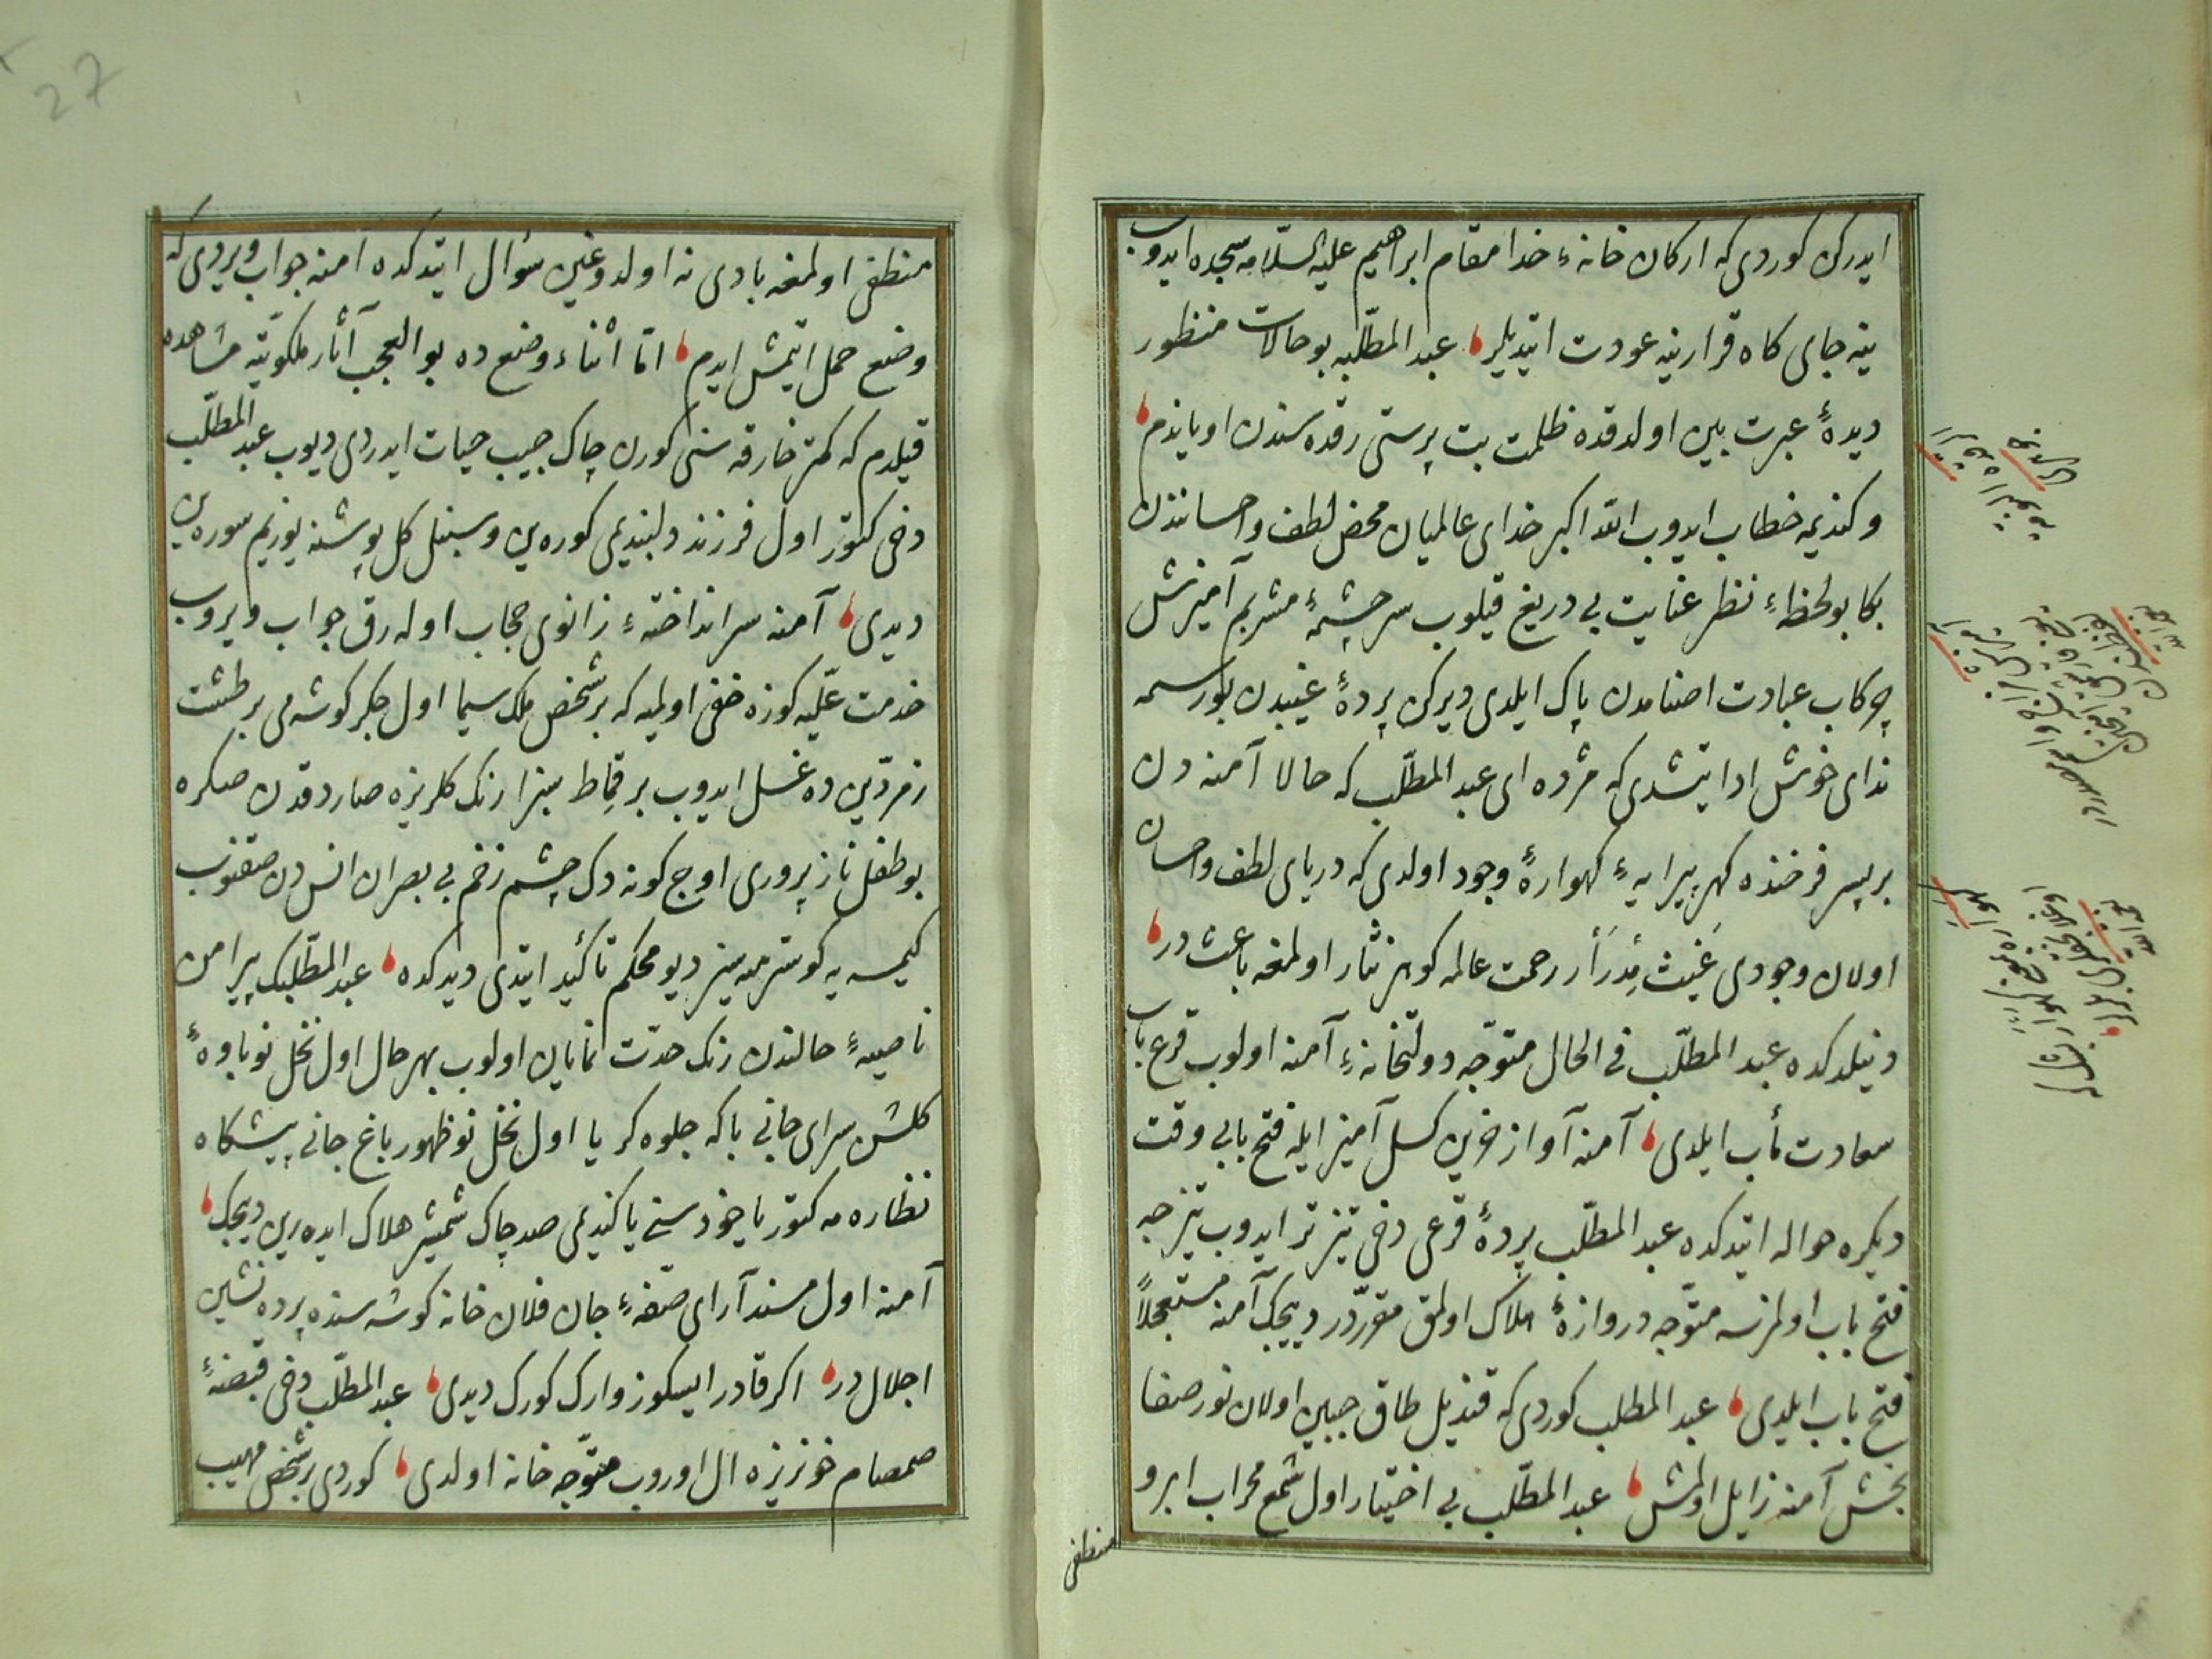 ايدركن كوردى كه اركان خانهٔ خدا مقام ابراهيم عليه السّلامه سجده ايدوب
ينه جاى كاه قرارينه عودت ايتديلر عبد المطّلبه بو حالات منظور
ديدهٔ عبرت بين اولدقده ظلمت بت پرستى رقده سندن اوياندم
وكنديمه خطاب ايدوب الله اكبر خداى عالميان محض لطف واحسانندن
بكا بو لحظهٔ نظر عنايت بى دريغ قيلوب سرچشمهٔ مشربم آميزش
چركاب عبادت اصنامدن پاك ايلدى ديركن پردهٔ غيبدن بو رسمه
نداى خوش ادا ايتشدى كه مژده اى عبد المطّلب كه حالا آمنه دن
بر پسر فرخنده كهر پيرايهٔ كهوارهٔ وجود اولدى كه درياى لطف واحسان
اولان وجودى غيث مدرار رحمت عالمه كوهر نثار اولمغه باعث در
دنيلدكده عبد المطّلب فى الحال متوجّه دولتخانهٔ آمنه اولوب قرع باب
سعادت مأب ايلدى آمنه آواز حزين كسل آميز ايله فتح بابى وقت
ديكره حواله ايتدكده عبد المطّلب پردهٔ قرعى دخى تيز تر ايدوب تيزجه
فتح باب اولمزسه متوجّه دروازهٔ هلاك اولمق مقرّردر ديجك آمنه مستعجلاً
فتح باب ايلدى عبد المطلب كوردى كه قنديل طاق جبين اولان نور صفا
بخش آمنه زايل اولمش عبد المطّلب بى اختيار اول شمع محراب ابرو
منطفى
منطفى اولمغه بادى نه اولدوغين سؤال ايتدكده امنه جواب ويردى كه
وضع حمل ايتمش ايدم امّا اثناء وضع ده بو العجب آثار ملكوتيّه مشاهده
قيلدم كه كمتر خارقه سنى كورن چاك جيب حيات ايدردى ديوب عبد المطّلب
دخى كتور اول فرزند دلبنديمى كوره ين وسنبل كل پوشنه يوزيم سوره ين
ديدى آمنه سر انداختهٔ زانوى حجاب اوله رق جواب ويروب
خدمت عليّه كوزه خفى اولميه كه بر شخص ملك سيما اول جكر كوشه مى بر طشت
زمرّدين ده غسل ايدوب بر قماط سبزا رنك كلريزه صاردقدن صكره
بو طفل ناز پرورى اوچ كونه دك چشم زخم بى بصران انس دن صقنوب
كيمسه يه كوسترميه سيز ديو محكم تأكيد ايتدى ديدكده عبد المطّلبك پيرامن
ناصيهٔ حالندن رنك حدّت نمايان اولوب بهر حال اول نخل نو باوهٔ
كلشن سراى جانى باكه جلوه كر يا اول نخل نو ظهور باغ جانى پيشكاه
نظاره مه كتور ياخود سنى يا كنديمى صد چاك شمشير هلاك ايده رين ديجك
آمنه اول مسند آراى صفّهٔ جان فلان خانه كوشه سنده پرده نشين
اجلال در اكر قادر ايسكز وارك كورك ديدى عبد المطّلب دخى قبضهٔ
صمصام خونريزه ال اوروب متوجّه خانه اولدى كوردى بر شخص مهيب
27